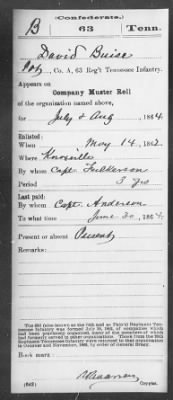 (Confederate.)
B 63 Tenn.
David Buise
Pvt, Co. A, 63 Reg't Tennessee Infantry.
Appears on
Company Muster Roll
of the organization named above,
for July & Aug, 1864.
Enlisted:
When May 14, 1862.
Where Knoxville
By whom Capt. Fulkerson
Period 3 yrs
Last paid:
By whom Capt. Anderson
To what time June 30, 1864.
Present or absent Present
Remarks:
Book mark:
(642) Copyist.